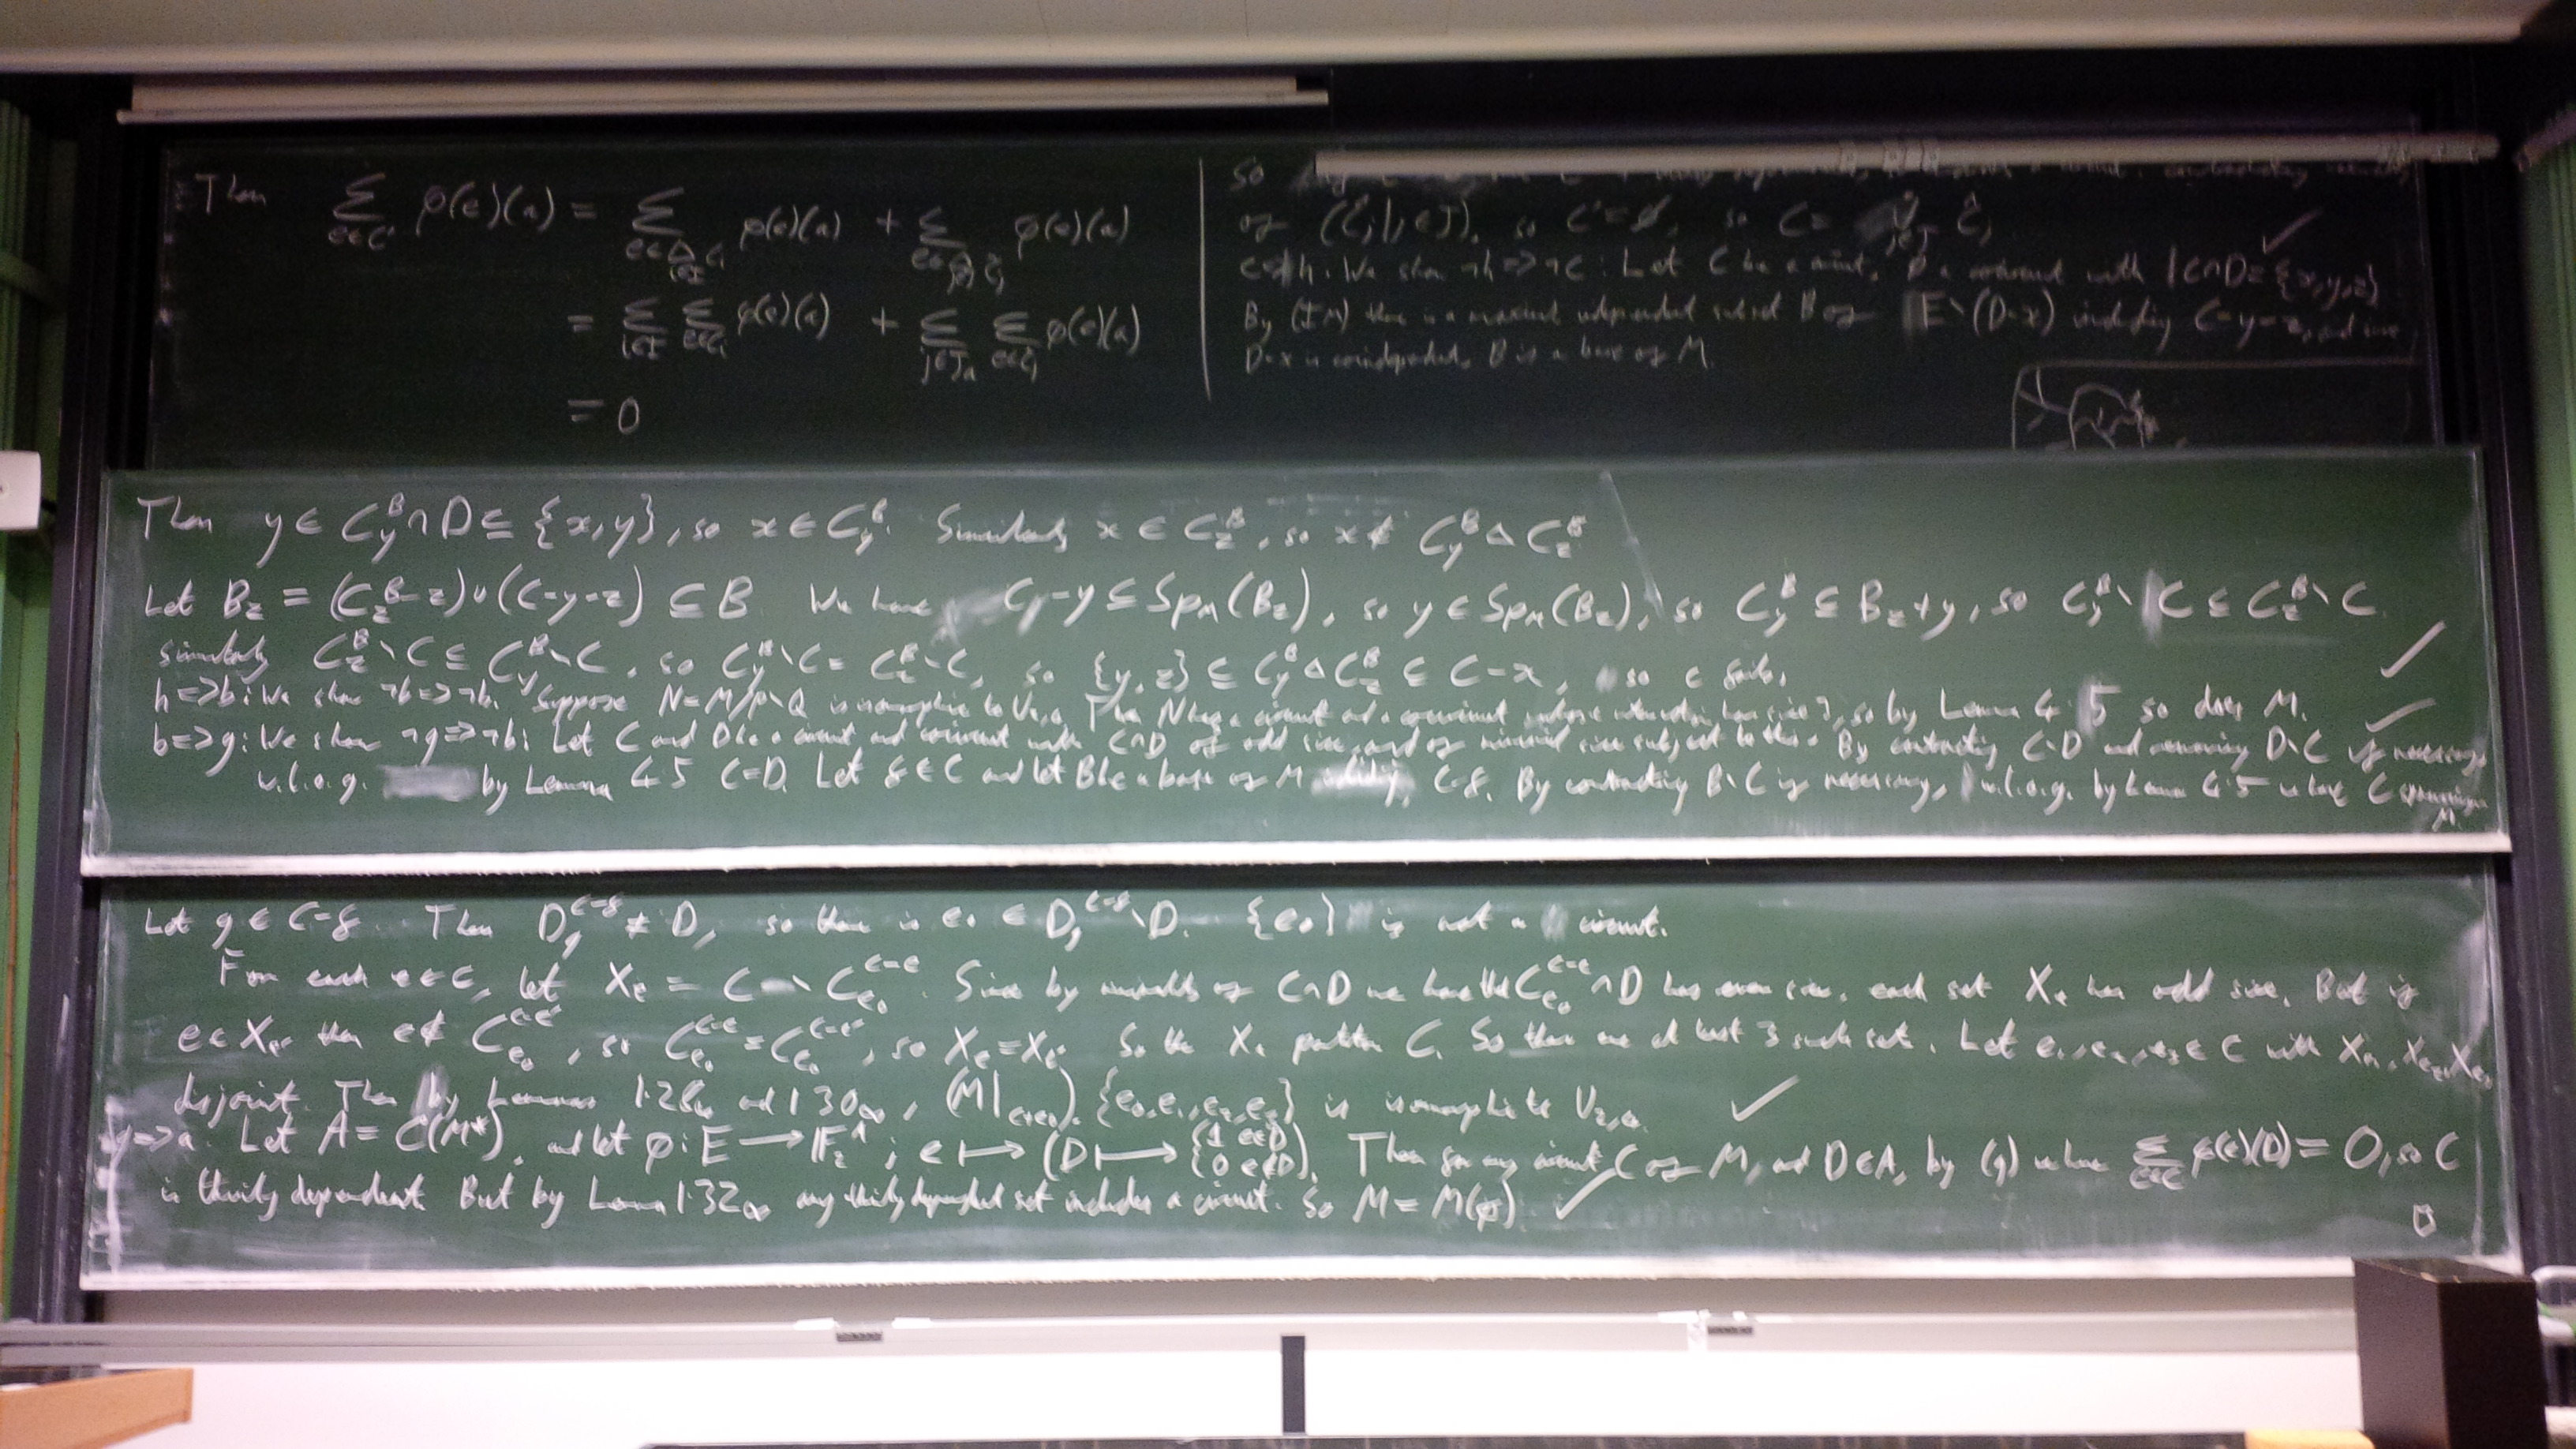 Then ∑_{e∈C'} φ(e)(a) = ∑_{e∈△_{i∈I} C_i} φ(e)(a) + ∑ φ(e)(a)
= ∑_{i∈I} ∑_{e∈C_i} φ(e)(a) + ∑_{j∈J_a} ∑_{e∈Ĉ_j} φ(e)(a)
= 0
so
of (Ĉ_j | j∈J), so C' = ∅, so C = Ĉ_j ✓
c⇒h: We show ¬h ⇒ ¬c: Let C be a circuit, D a cocircuit with C∩D = {x,y,z}
By (IM) there is a maximal independent subset B of E∖(D-x) including C-y-z, and since
D-x is coindependent, B is a base of M.
Then y ∈ C_y^B ∩ D ⊆ {x,y}, so x ∈ C_y^B. Similarly x ∈ C_z^B, so x ∉ C_y^B △ C_z^B
Let B_z = (C_z^B - z) ∪ (C-y-z) ⊆ B We have C-y ⊆ Sp_M(B_z), so y ∈ Sp_M(B_z), so C_y^B ⊆ B_z + y, so C_y^B∖C ⊆ C_z^B∖C
Similarly C_z^B∖C ⊆ C_y^B∖C, so C_y^B∖C = C_z^B∖C, so {y,z} ⊆ C_y^B △ C_z^B ⊆ C-x, so c fails. ✓
h⇒b: We show ¬b ⇒ ¬h. Suppose N = M/P∖Q is isomorphic to U_{2,4}. Then N has a circuit and a cocircuit whose intersection has size 3, so by Lemma 4.5 so does M. ✓
b⇒g: We show ¬g ⇒ ¬b: Let C and D be a circuit and cocircuit with C∩D of odd size, and of minimal size subject to this. By contracting C∖D and removing D∖C if necessary,
w.l.o.g. by Lemma 4.5 C=D. Let f ∈ C and let B be a base of M including C-f. By contracting B∖C if necessary, w.l.o.g. by Lemma 4.5 we have C spanning in M.
Let g ∈ C-f. Then D_g^{C-f} ≠ D, so there is e_0 ∈ D_g^{C-f}∖D. {e_0} is not a circuit.
For each e∈C, let X_e = C∖C_{e_0}^{C-e}. Since by minimality of C∩D we have that C_{e_0}^{C-e}∩D has even size, each set X_e has odd size. But if
e ∈ X_{e'} then e ∉ C_{e_0}^{C-e'}, so C_{e_0}^{C-e} = C_{e_0}^{C-e'}, so X_e = X_{e'}. So the X_e partition C. So there are at least 3 such sets. Let e_1, e_2, e_3 ∈ C with X_{e_1}, X_{e_2}, X_{e_3}
disjoint. Then by Lemmas 1.28∞ and 1.30∞, (M|_{C+e_0}).{e_0,e_1,e_2,e_3} is isomorphic to U_{2,4}. ✓
g⇒a. Let A = C(M*), and let φ: E → F_2^A ; e ↦ (D ↦ {1 e∈D, 0 e∉D). Then for any circuit C of M, and D∈A, by (g) we have ∑_{e∈C} φ(e)(D) = 0, so C
is thinly dependent. But by Lemma 1.32∞ any thinly dependent set includes a circuit. So M = M(φ) ✓ □